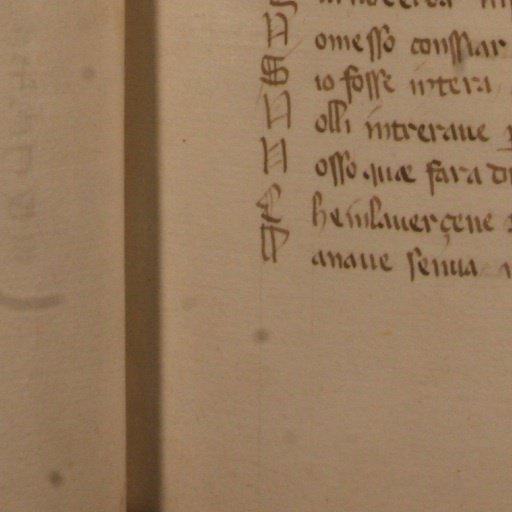 N omesso conssiar
S io fosse intera
N olli intreraue
N osso quae fara di
C he inlauerçene
M anaue senua